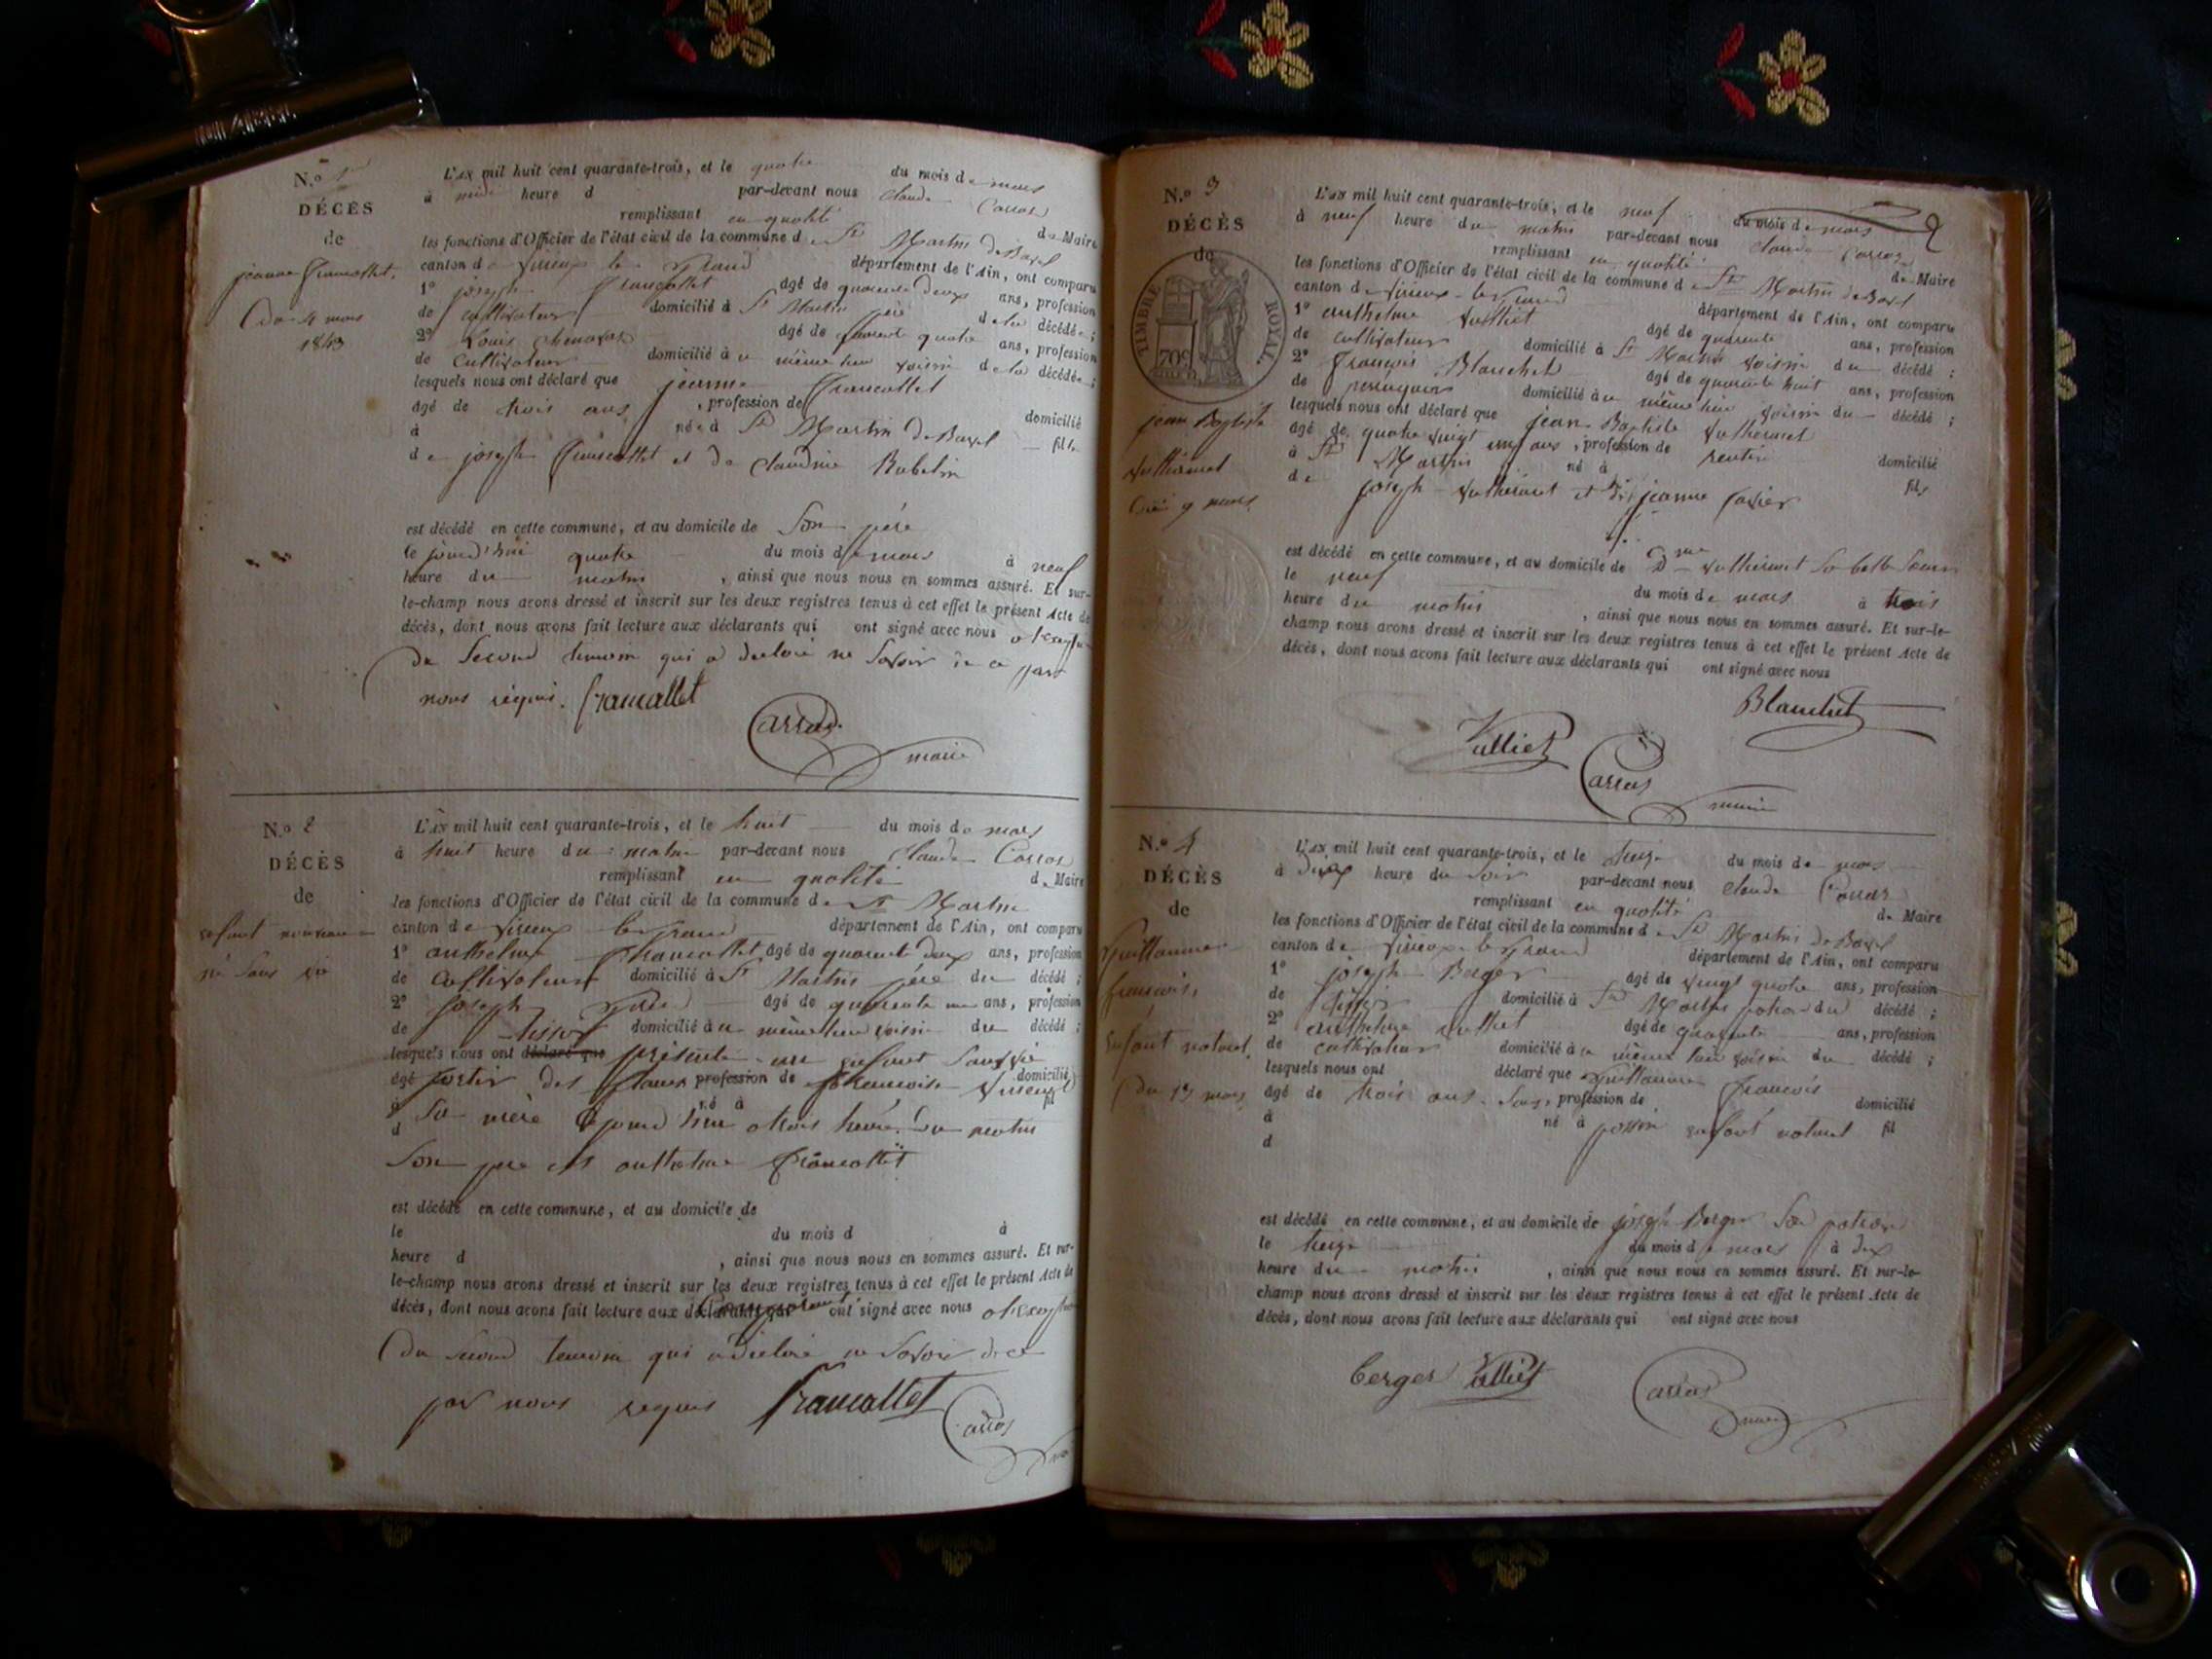 N.º 1
DÉCÈS
de
jeanne francallet
du 4 mars
1843
L'AN mil huit cent quarante-trois, et le quatre du mois de mars
à midi heure d par-devant nous claude Carras
remplissant en qualité de Maire
les fonctions d'Officier de l'état civil de la commune de St Martin de Bavel
canton de virieux le grand département de l'Ain, ont comparu
1º joseph francallet âgé de quarante deux ans, profession
de cultivateur domicilié à St Martin père de la décédée;
2º Louis âgé de quarante quatre ans, profession
de cultivateur domicilié au même lieu voisin de la décédée;
lesquels nous ont déclaré que jeanne francallet
âgé de trois ans, profession de domicilié
à née à St Martin de Bavel fille
de joseph francallet et de claudine Rubelin
est décédé en cette commune, et au domicile de Son père
le jourd'hui quatre du mois de mars à neuf
heure du matin, ainsi que nous nous en sommes assuré. Et sur-
le-champ nous avons dressé et inscrit sur les deux registres tenus à cet effet le présent Acte de
décès, dont nous avons fait lecture aux déclarants qui ont signé avec nous
du Second temoin qui a declaré ne Savoir de ce par
nous requis. francallet
Carras
maire
N.º 2
DÉCÈS
de
enfant nouveau
né sans vie
L'AN mil huit cent quarante-trois, et le huit du mois de mars
à huit heure du matin par-devant nous claude Carras
remplissant en qualité de Maire
les fonctions d'Officier de l'état civil de la commune de St Martin
canton de virieux le grand département de l'Ain, ont comparu
1º anthelme francallet âgé de quarante deux ans, profession
de cultivateur domicilié à St Martin père du décédé;
2º joseph âgé de quarante un ans, profession
de tissot domicilié au même lieu voisin du décédé;
lesquels nous ont déclaré que présenté un enfant sans vie
âgé sortir des flancs profession de françoise domicilié
à Sa mère né à jourd'hui trois heures du matin fil
d
Son père est anthelme francallet
est décédé en cette commune, et au domicile de
le du mois d à
heure d , ainsi que nous nous en sommes assuré. Et sur-
le-champ nous avons dressé et inscrit sur les deux registres tenus à cet effet le présent Acte de
décès, dont nous avons fait lecture aux déclarants qui ont signé avec nous
du second temoin qui a declaré ne Savoir de ce
par nous requis francallet Carras
N.º 3
DÉCÈS
de
TIMBRE ROYAL
70c
jean Baptiste
vuthérinet
du 9 mars
L'AN mil huit cent quarante-trois, et le neuf du mois de mars
2
à neuf heure du matin par-devant nous claude Carras
remplissant en qualité de Maire
les fonctions d'Officier de l'état civil de la commune de St Martin de Bavel
canton de virieux le grand département de l'Ain, ont comparu
1º anthelme vulliet âgé de quarante ans, profession
de cultivateur domicilié à St Martin voisin du décédé;
2º françois Blanchet âgé de quarante huit ans, profession
de domicilié au même lieu voisin du décédé;
lesquels nous ont déclaré que jean Baptiste vuthérinet
âgé de quatre vingt ans, profession de rentier domicilié
à St Martin né à fils
de joseph vuthérinet et de jeanne
est décédé en cette commune, et au domicile de Dme vuthérinet sa belle Soeur
le neuf du mois de mars à trois
heure du matin, ainsi que nous nous en sommes assuré. Et sur-le-
champ nous avons dressé et inscrit sur les deux registres tenus à cet effet le présent Acte de
décès, dont nous avons fait lecture aux déclarants qui ont signé avec nous
Blanchet
Vulliet
Carras
maire
N.º 4
DÉCÈS
de
Guillaume
françois,
Enfant naturel
du 13 mars
L'AN mil huit cent quarante-trois, et le treize du mois de mars
à heure du Soir par-devant nous claude Carras
remplissant en qualité de Maire
les fonctions d'Officier de l'état civil de la commune de St Martin de Bavel
canton de virieux le grand département de l'Ain, ont comparu
1º joseph Berger âgé de vingt quatre ans, profession
de domicilié à St Martin patron du décédé;
2º anthelme vulliet âgé de quarante ans, profession
de cultivateur domicilié au même lieu voisin du décédé;
lesquels nous ont déclaré que Guillaume françois
âgé de trois ans, Sans, profession de domicilié
à né à enfant naturel fil
d
est décédé en cette commune, et au domicile de joseph Berger Son patron
le treize du mois de mars à dix
heure du matin, ainsi que nous nous en sommes assuré. Et sur-le-
champ nous avons dressé et inscrit sur les deux registres tenus à cet effet le présent Acte de
décès, dont nous avons fait lecture aux déclarants qui ont signé avec nous
berger Vulliet Carras
maire